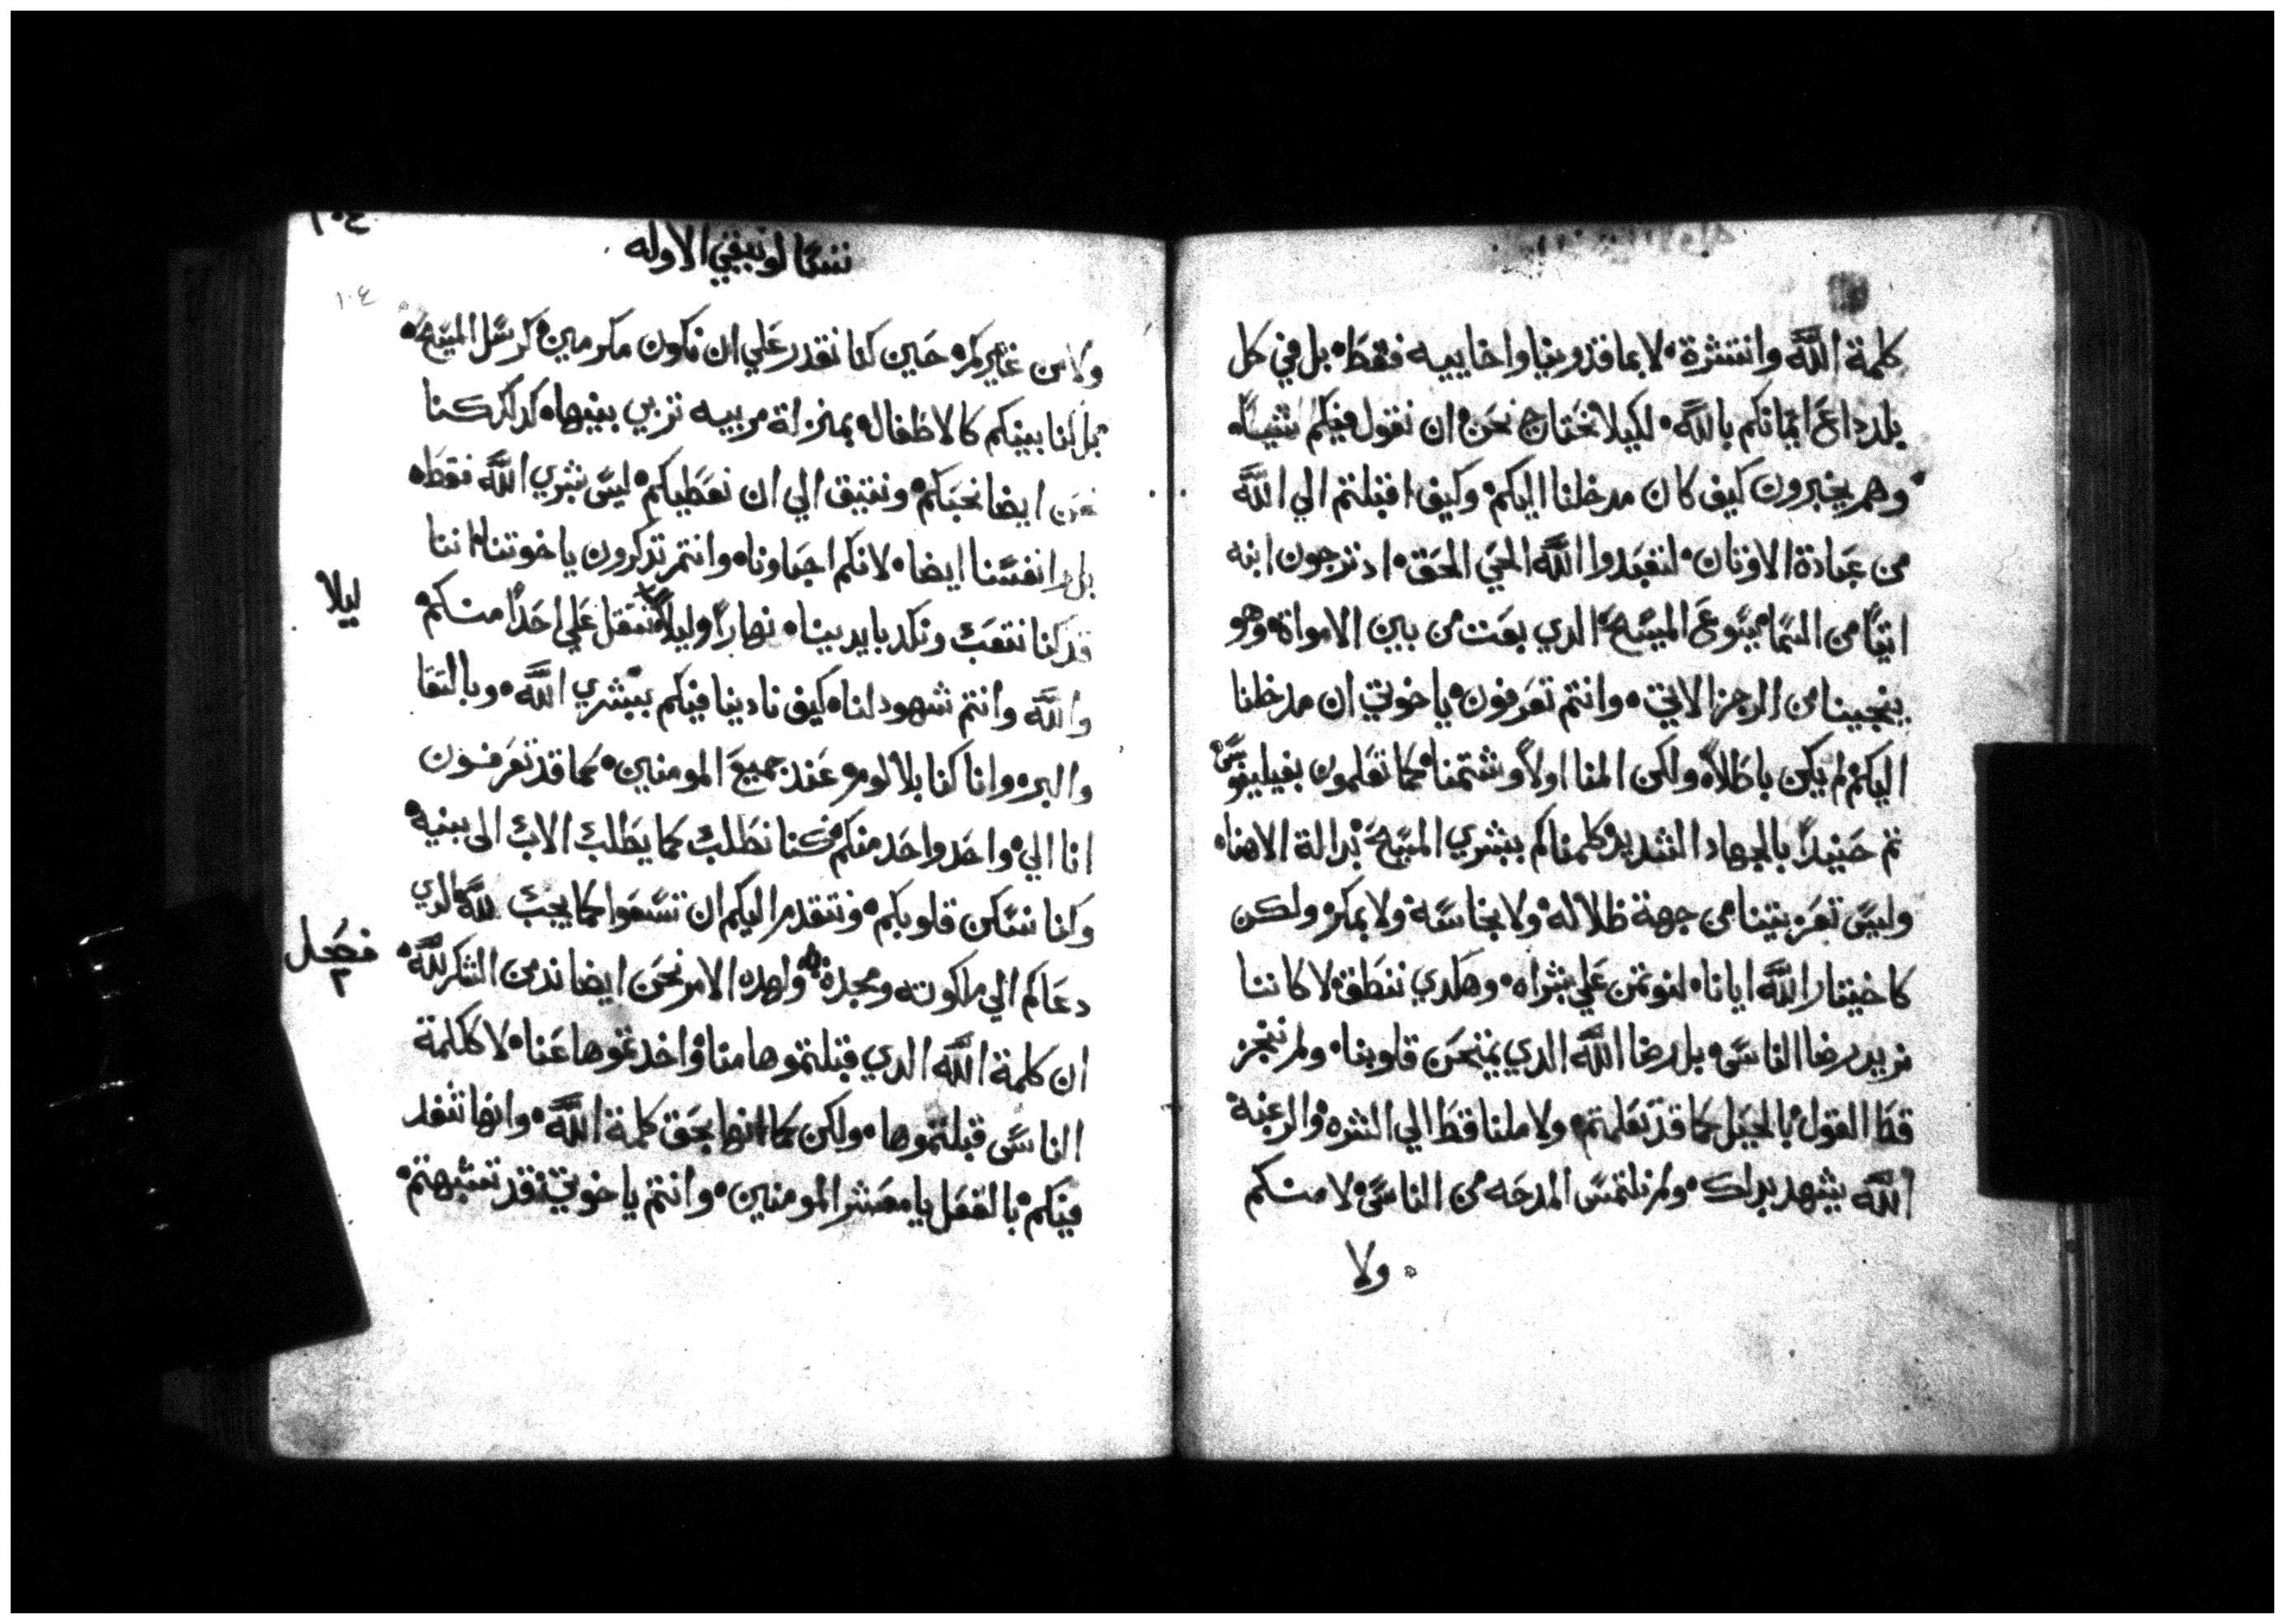 كلمة الله وانتشرة لا بماقدونيا واخاييه فقط بل في كل
بلد داع ايمانكم بالله لكيلا نحتاج نحن ان نقول فيكم شيا
وهم يخبرون كيف كان مدخلنا اليكم وكيف اقبلتم الي الله
من عبادة الاوتان لتعبدوا الله الحي الحق اد ترجون ابنه
اتيا من السما يسوع المسيح الدي بعت من بين الامواة وهو
ينجينا من الرجز الاتي وانتم تعرفون يا خوتي ان مدخلنا
اليكم لم يكن باطلا ولكن المنا اولا وشتمنا كما تعلمون بفيليبوس
تم حنيدا بالجهاد الشديد كلمناكم ببشري المسيح بدالة الاهنا
وليس تعزيتنا من جهة ظلاله ولا بخاسة ولا بمكر ولكن
كاختيار الله ايانا لنوتمن علي بشراه وهكدي ننطق لا كاننا
نريد رضا الناس بل رضا الله الدي يمتحن قلوبنا ولم نتجز
قط القول بالحيل كما قد تعلمتم ولا ملنا قط الي الشره والرغبة
الله يشهد بدلك ولم نلتمس المدحه من الناس لا منكم
ولا
١٠٤
تسالونيقي الاوله
١٠٤
ولا من غيركم حين كنا نقدر علي ان نكون مكرمين كرسل المسيح
بل كنا بينكم كالاطفال بمنزلة مربيه تربي بنيها كدلك كنا
نحن ايضا نحبكم ونتيق الي ان نعطيكم ليس بشري الله فقط
بل وانفسنا ايضا لانكم احباونا وانتم تدكرون ياخوتنا اننا
قد كنا نتعب ونكد بايدينا نهارا وليلا نتقل علي احدا منكم
ليلا
والله وانتم شهود لنا كيف نادينا فيكم ببشري الله وبالتقا
والبر وانا كنا بلا لوم عند جميع المومنين كما قد تعرفون
انا الي واحد واحد منكم كنا نطلب كما يطلب الاب الى بنيه
وكنا نسكن قلوبكم ونتقدم اليكم ان تسعوا كما يجب لله الدي
دعاكم الي ملكوته ومجده ولهده الامر نحن ايضا ندمن الشكر لله
فصل
٢
ان كلمة الله الدي قبلتموها منا واخدتموها عنا لا ككلمة
الناس قبلتموها ولكن كما انها بحق كلمة الله وانها تنفد
فيكم بالفعل يا معشر المومنين وانتم يا خوتي قد تشبهتم